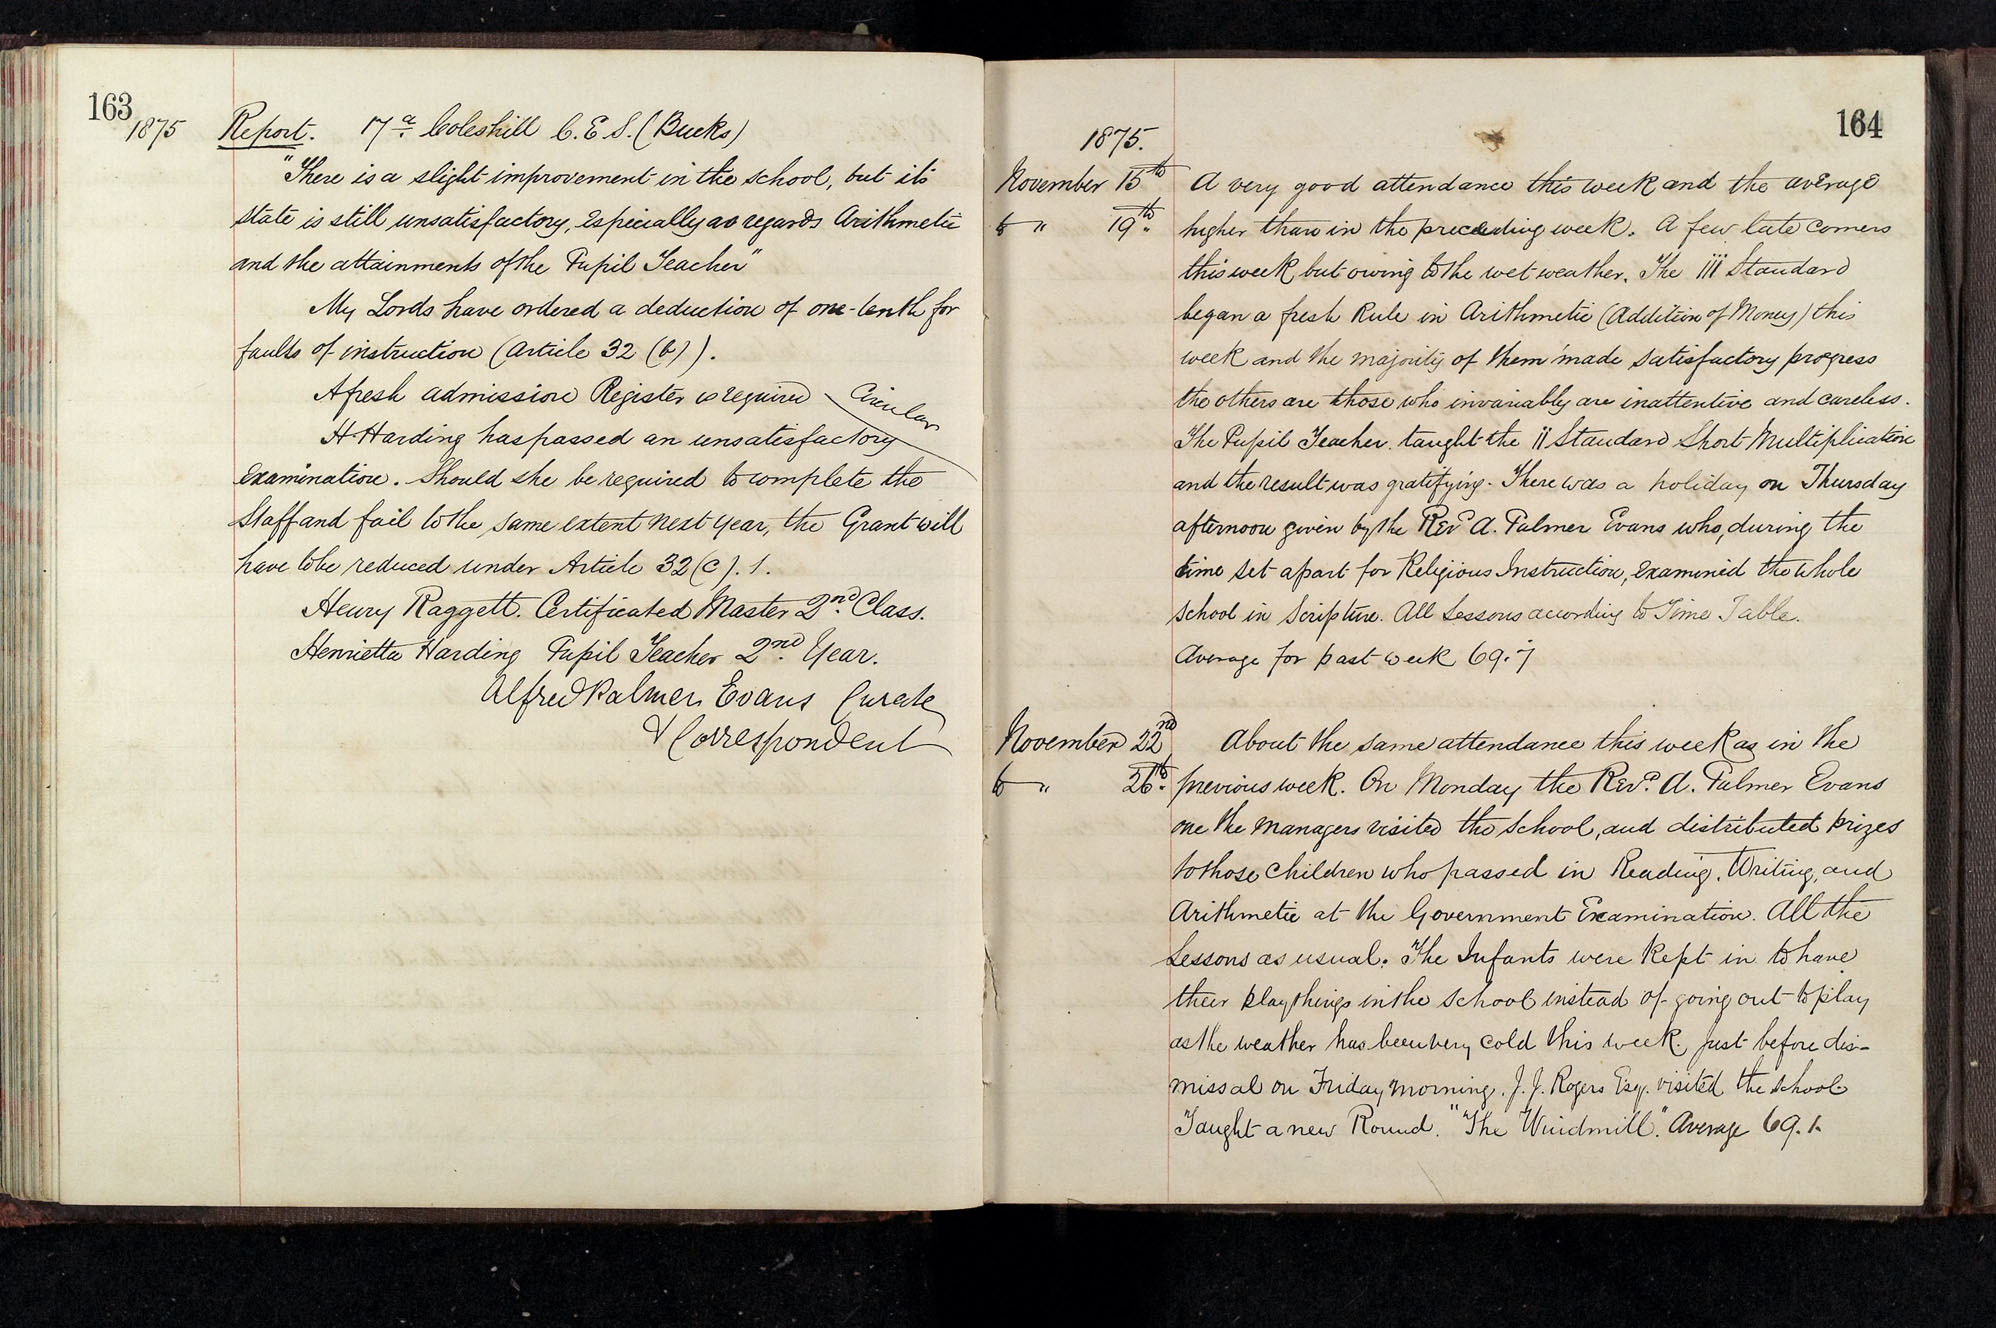 163
1875 Report. 17 a Coleshill C. E. S. (Bucks)
"There is a slight improvement in the school, but its
state is still unsatisfactory, especially as regards Arithmetic
and the attainments of the Pupil Teacher"
My Lords have ordered a deduction of one-tenth for
faults of instruction (Article 32 (b)).
A fresh admission Register is required Circular
H Harding has passed an unsatisfactory
examination. Should she be required to complete the
Staff and fail to the same extent next year, the Grant will
have to be reduced under Article 32 (c). 1.
Henry Raggett. Certificated Master 2nd. Class.
Henrietta Harding Pupil Teacher 2nd. Year.
Alfred Palmer Evans Curate
& Correspondent
164
1875.
November 15th A very good attendance this week and the average
to " 19th. higher than in the preceding week. A few late comers
this week but owing to the wet weather. The III Standard
began a fresh Rule in Arithmetic (Addition of Money) this
week and the majority of them made satisfactory progress
the others are those who invariably are inattentive and careless.
The Pupil Teacher taught the II Standard Short Multiplication
and the result was gratifying. There was a holiday on Thursday
afternoon given by the Revd A. Palmer Evans who, during the
time set apart for Religious Instruction, examined the whole
school in Scripture. All Lessons according to Time Table.
Average for past week 69.7
November 22nd About the same attendance this week as in the
to " 26th. previous week. On Monday the Revd. A. Palmer Evans
one the Managers visited the school, and distributed prizes
to those children who passed in Reading, Writing, and
Arithmetic at the Government Examination. All the
Lessons as usual. The Infants were kept in to have
their playthings in the school instead of going out to play
as the weather has been very cold this week. Just before dis-
missal on Friday morning, J. J. Rogers Esq. visited the school
Taught a new Round. "The Windmill." Average 69.1.